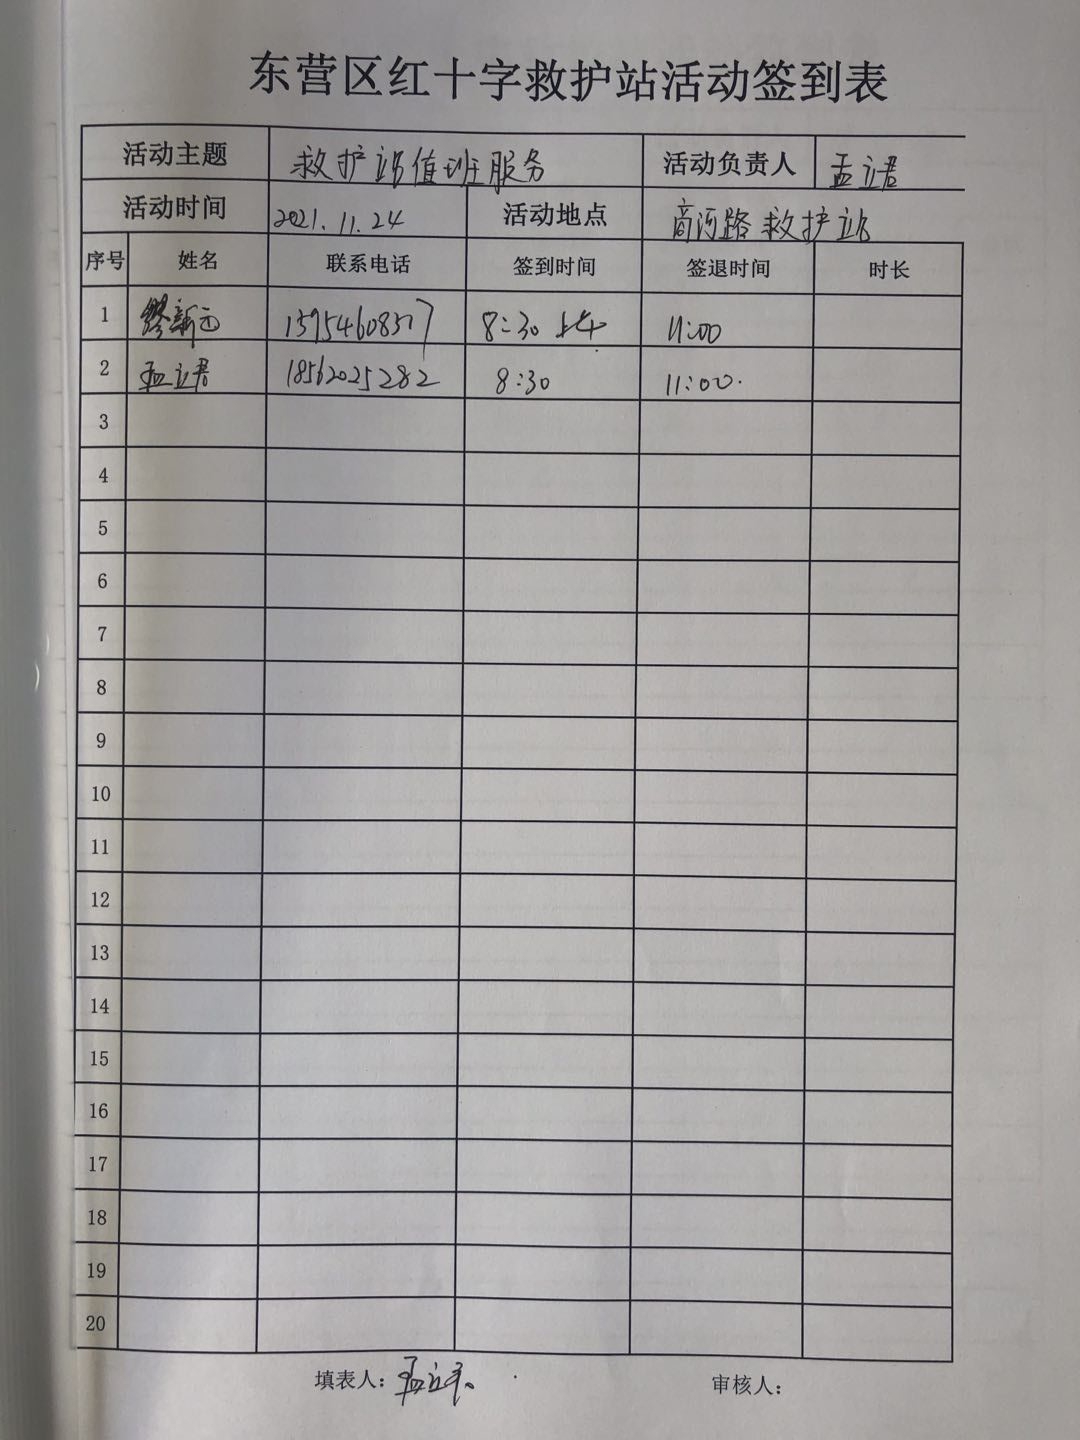 东营区红十字救护站活动签到表
活动主题 救护站值班服务 活动负责人 孟立君
活动时间 2021.11.24 活动地点 商河路救护站
序号 姓名 联系电话 签到时间 签退时间 时长
1 缪新 8:30 上午 11:00
2 孟立君 18562025282 8:30 11:00.
3
4
5
6
7
8
9
10
11
12
13
14
15
16
17
18
19
20
填表人：孟立君 审核人：